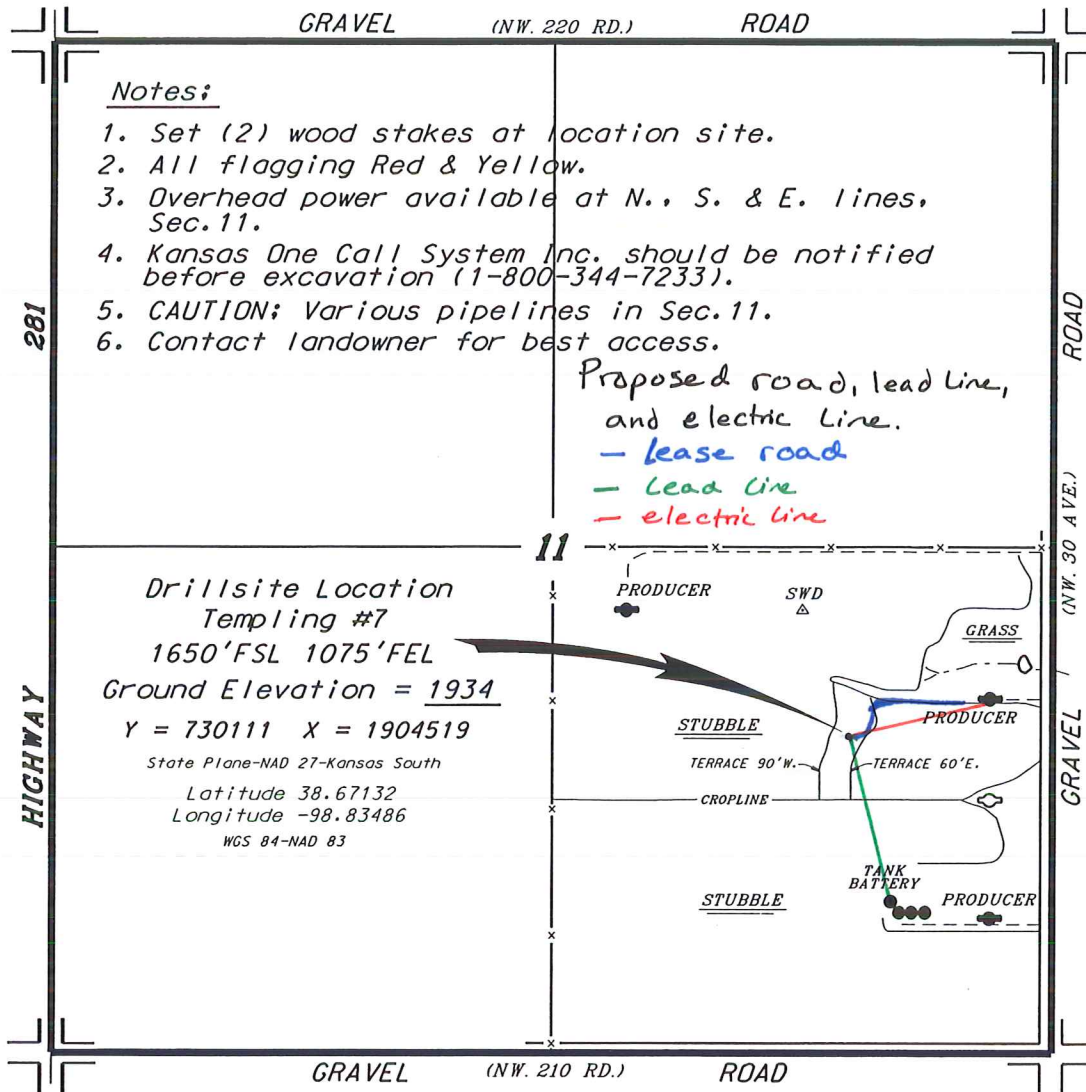 GRAVEL (NW. 220 RD.) ROAD
Notes:
1. Set (2) wood stakes at location site.
2. All flagging Red & Yellow.
3. Overhead power available at N., S. & E. lines,
Sec. 11.
4. Kansas One Call System Inc. should be notified
before excavation (1-800-344-7233).
5. CAUTION: Various pipelines in Sec. 11.
6. Contact landowner for best access.
Proposed road, lead line,
and electric line.
- lease road
- lead line
- electric line
281
HIGHWAY
ROAD
(NW. 30 AVE.)
GRAVEL
11
Drillsite Location
Templing #7
1650'FSL 1075'FEL
Ground Elevation = 1934
Y = 730111 X = 1904519
State Plane-NAD 27-Kansas South
Latitude 38.67132
Longitude -98.83486
WGS 84-NAD 83
PRODUCER
SWD
GRASS
STUBBLE
PRODUCER
TERRACE 90'W.
TERRACE 60'E.
CROPLINE
TANK
BATTERY
STUBBLE
PRODUCER
GRAVEL (NW. 210 RD.) ROAD